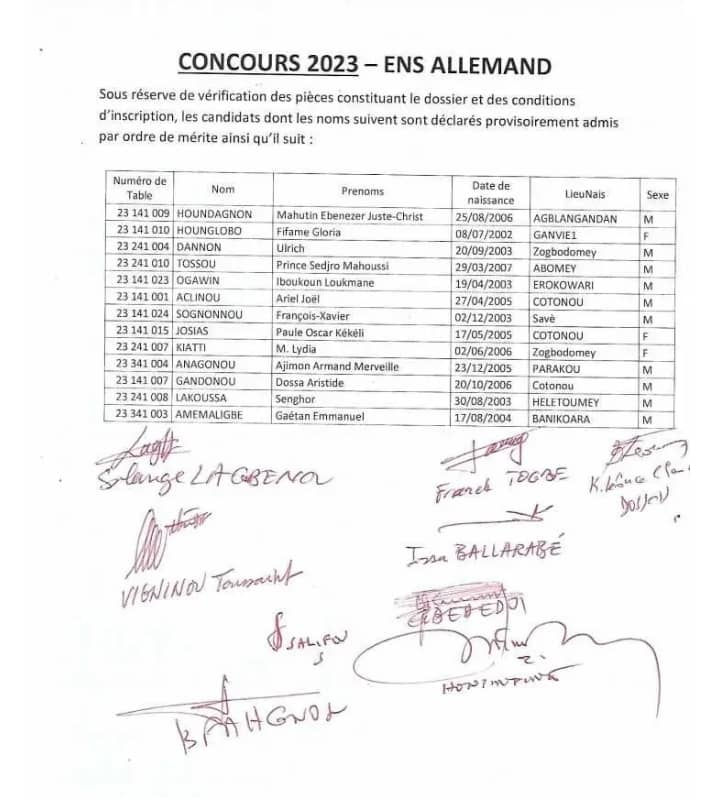 CONCOURS 2023 – ENS ALLEMAND
Sous réserve de vérification des pièces constituant le dossier et des conditions
d'inscription, les candidats dont les noms suivent sont déclarés provisoirement admis
par ordre de mérite ainsi qu'il suit :
Numéro de Table Nom Prenoms Date de naissance LieuNais Sexe
23 141 009 HOUNDAGNON Mahutin Ebenezer Juste-Christ 25/08/2006 AGBLANGANDAN M
23 141 010 HOUNGLOBO Fifame Gloria 08/07/2002 GANVIE1 F
23 241 004 DANNON Ulrich 20/09/2003 Zogbodomey M
23 241 010 TOSSOU Prince Sedjro Mahoussi 29/03/2007 ABOMEY M
23 141 023 OGAWIN Iboukoun Loukmane 19/04/2003 EROKOWARI M
23 141 001 ACLINOU Ariel Joël 27/04/2005 COTONOU M
23 141 024 SOGNONNOU François-Xavier 02/12/2003 Savè M
23 141 015 JOSIAS Paule Oscar Kékéli 17/05/2005 COTONOU F
23 241 007 KIATTI M. Lydia 02/06/2006 Zogbodomey F
23 341 004 ANAGONOU Ajimon Armand Merveille 23/12/2005 PARAKOU M
23 141 007 GANDONOU Dossa Aristide 20/10/2006 Cotonou M
23 241 008 LAKOUSSA Senghor 30/08/2003 HELETOUMEY M
23 341 003 AMEMALIGBE Gaétan Emmanuel 17/08/2004 BANIKOARA M
Solange LAGBENOU
Franck TOGBE
Issa BALLARABÉ
VIGNINOU Toussaint
SALIFOU
S